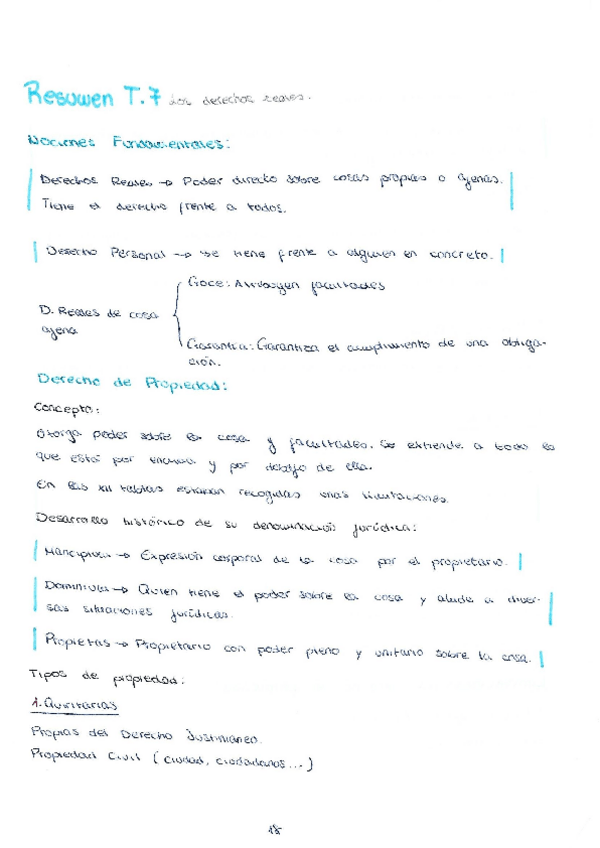 Resumen T.7 Los derechos reales.
Nociones Fundamentales:
Derechos Reales → Poder directo sobre cosas propias o ajenas.
Tiene el derecho frente a todos.
Derecho Personal → se tiene frente a alguien en concreto.
Goce: Atribuyen facultades
D. Reales de cosa
ajena
Garantía: Garantiza el cumplimiento de una obliga-
ción.
Derecho de Propiedad:
Concepto:
Otorga poder sobre la cosa y facultades. Se extiende a todo lo
que está por encima y por debajo de ella.
En las XII tablas estaban recogidas unas limitaciones.
Desarrollo histórico de su denominación jurídica:
Mancipium → Expresión corporal de la cosa por el propietario.
Dominium → Quien tiene el poder sobre la cosa y alude a diver-
sas situaciones jurídicas.
Propietas → Propietario con poder pleno y unitario sobre la cosa.
Tipos de propiedad:
1. Quiritarias
Propias del Derecho Justinianeo.
Propiedad Civil (ciudad, ciudadanos...)
18